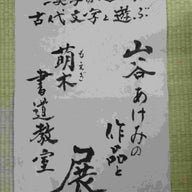 古代文字と遊ぶ
山谷あけみの
作品と
萌木
もえぎ
書道教室
展